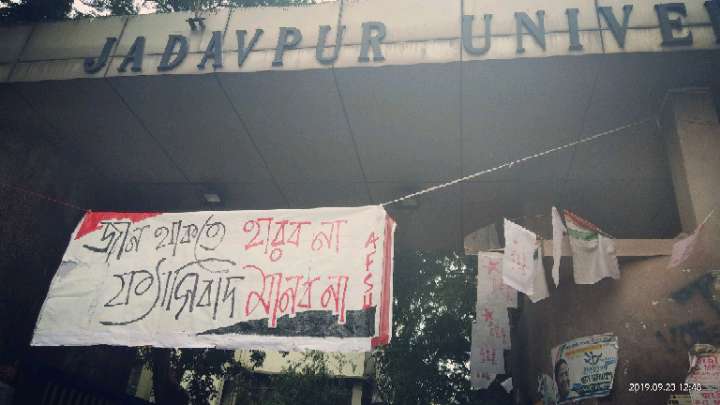 JADAVPUR UNIVE
জান থাকতে হারব না
ফ্যাসিবাদ মানব না
AFSU
2019.09.23 12:40